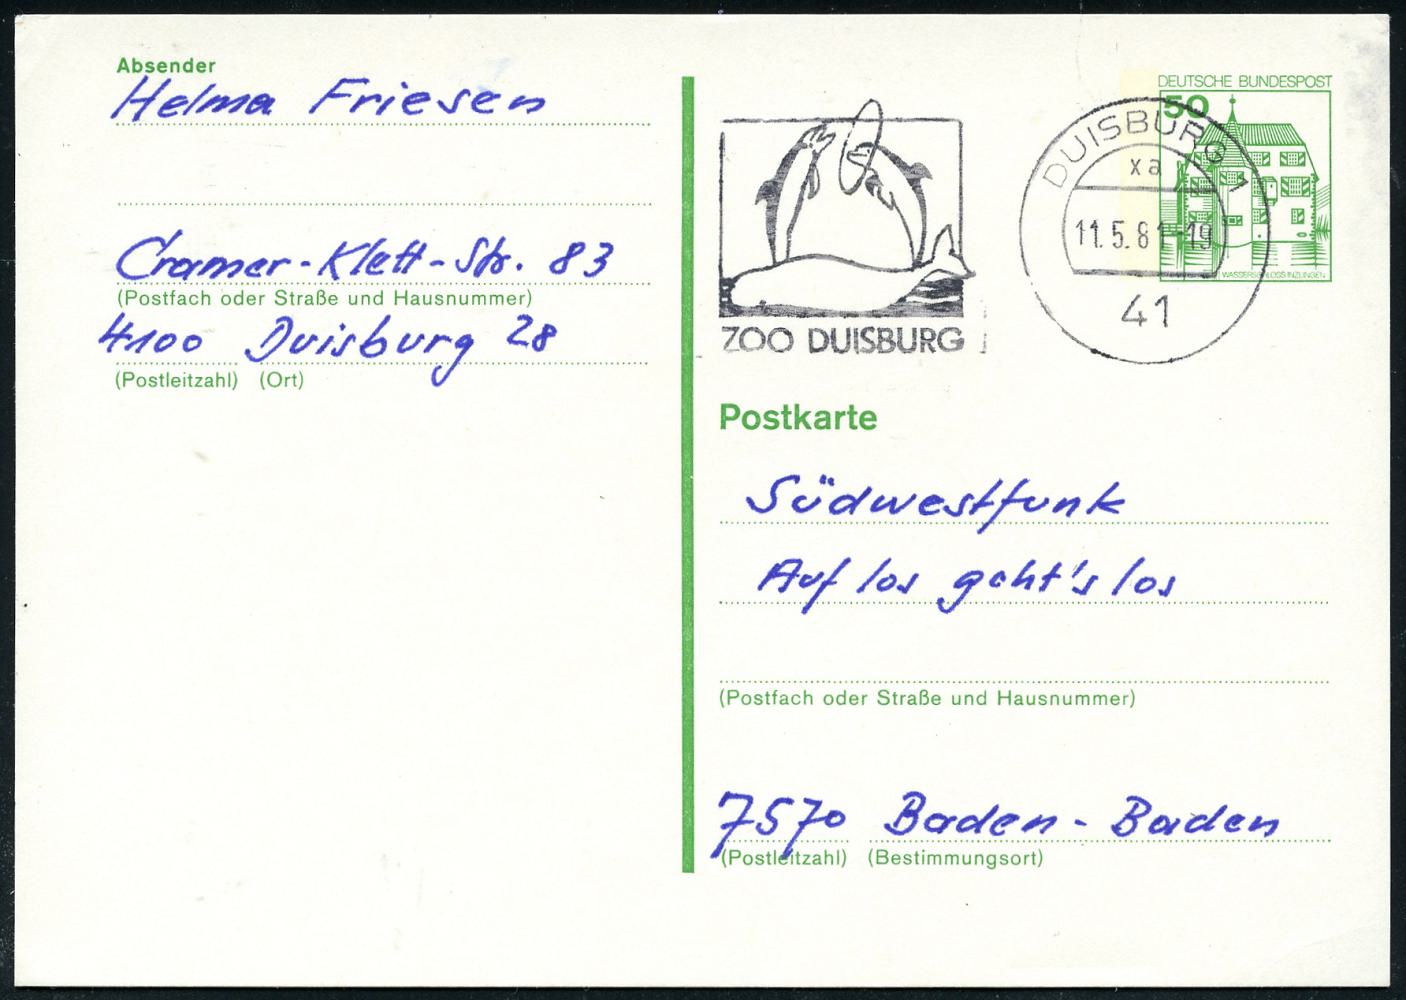 Absender
Helma Friesen
Cramer-Klett-Str. 83
(Postfach oder Straße und Hausnummer)
4100 Duisburg 28
(Postleitzahl) (Ort)
ZOO DUISBURG
DUISBURG 1
xa
11.5.81-19
41
DEUTSCHE BUNDESPOST
50
WASSERSCHLOSS INZLINGEN
Postkarte
Südwestfunk
Auf los geht's los
(Postfach oder Straße und Hausnummer)
7570 Baden-Baden
(Postleitzahl) (Bestimmungsort)